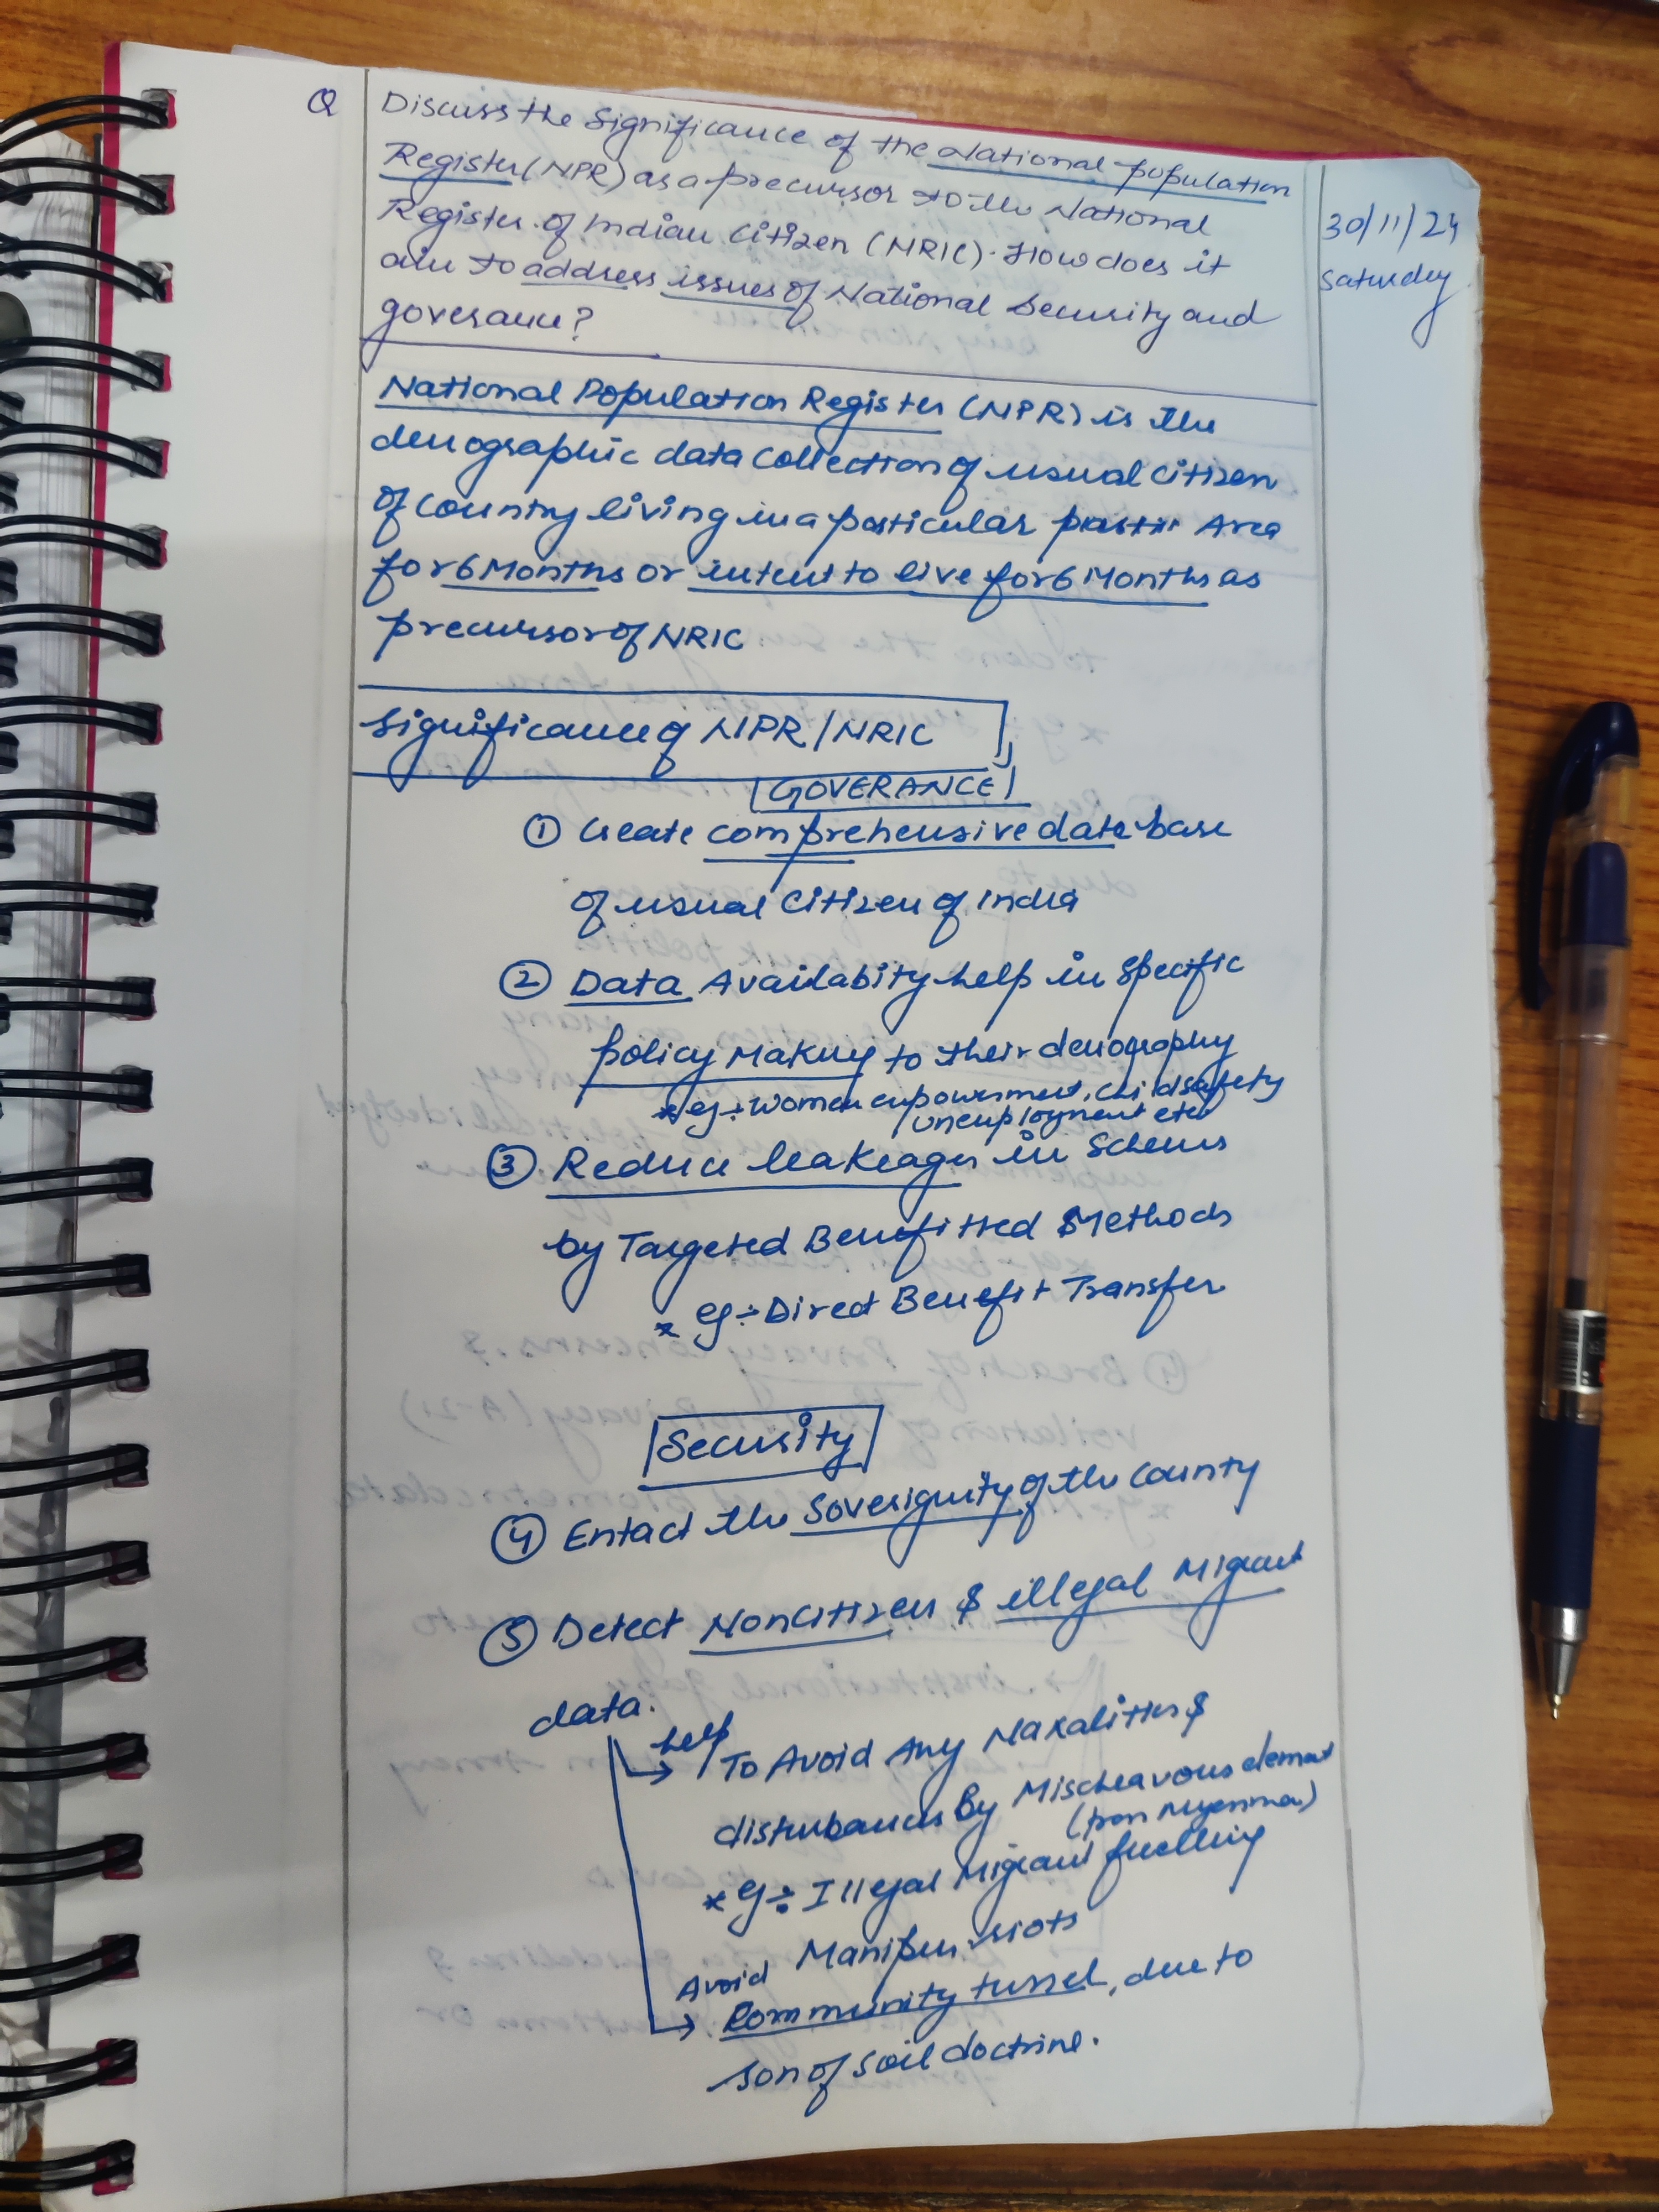 Q Discuss the Significance of the National population
Register (NPR) as a precursor to the National
Register of Indian Citizen (NRIC). How does it
aim to address issues of National Security and
goverance?
30/11/24
Saturday
National Population Register (NPR) is the
demographic data collection of usual citizen
of country living in a particular Area
for 6 Months or intent to live for 6 Months as
precursor of NRIC
Significance of NPR/NRIC
GOVERANCE
① Create comprehensive data base
of usual Citizen of India
② Data Availabity help in specific
policy making to their demography
* eg :- women empowerment, child safety
unemployment etc
③ Reduce leakages in Schems
by Targeted Benefitted Methods
* eg :- Direct Benefit Transfer
Security
④ Entact the Soverignity of the County
⑤ Detect Noncitizen & illegal Migrant
data.
help
To Avoid Any Naxalities &
disturbances By Mischeavous element
(from Myanmar)
* eg :- Illegal Migrant fuelling
Manipur riots
Avoid
Community tussel, due to
son of soil doctrine.